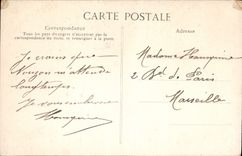 CARTE POSTALE
Correspondance
Tous les pays étrangers n'acceptent pas la
correspondance au recto, se renseigner à la poste.
Adresse
Je crains que
m'attende
longtemps.
Je vous embrasse
Madame
2 Bd de Paris
Marseille